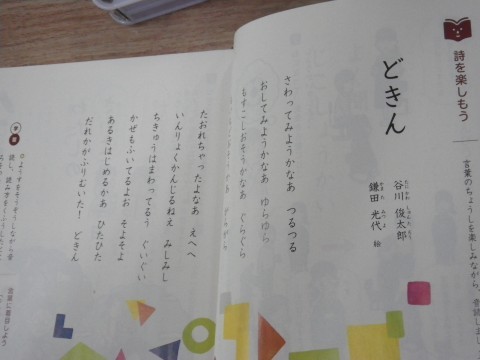 詩を楽しもう
言葉のちょうしを楽しみながら、音読しまし
どきん
谷川 俊太郎
たにかわ しゅんたろう
鎌田 光代 絵
かまた みつよ
さわってみようかなあ つるつる
おしてみようかなあ ゆらゆら
もすこしおそうかなあ ぐらぐら
たおれちゃったよなあ えへへ
いんりょくかんじるねえ みしみし
ちきゅうはまわってるう ぐいぐい
かぜもふいてるよお そよそよ
あるきはじめるかあ ひたひた
だれかがふりむいた! どきん
ようすをそうぞうしながら音
読し、読み方をくふうしたとこ
言葉に着目しよう